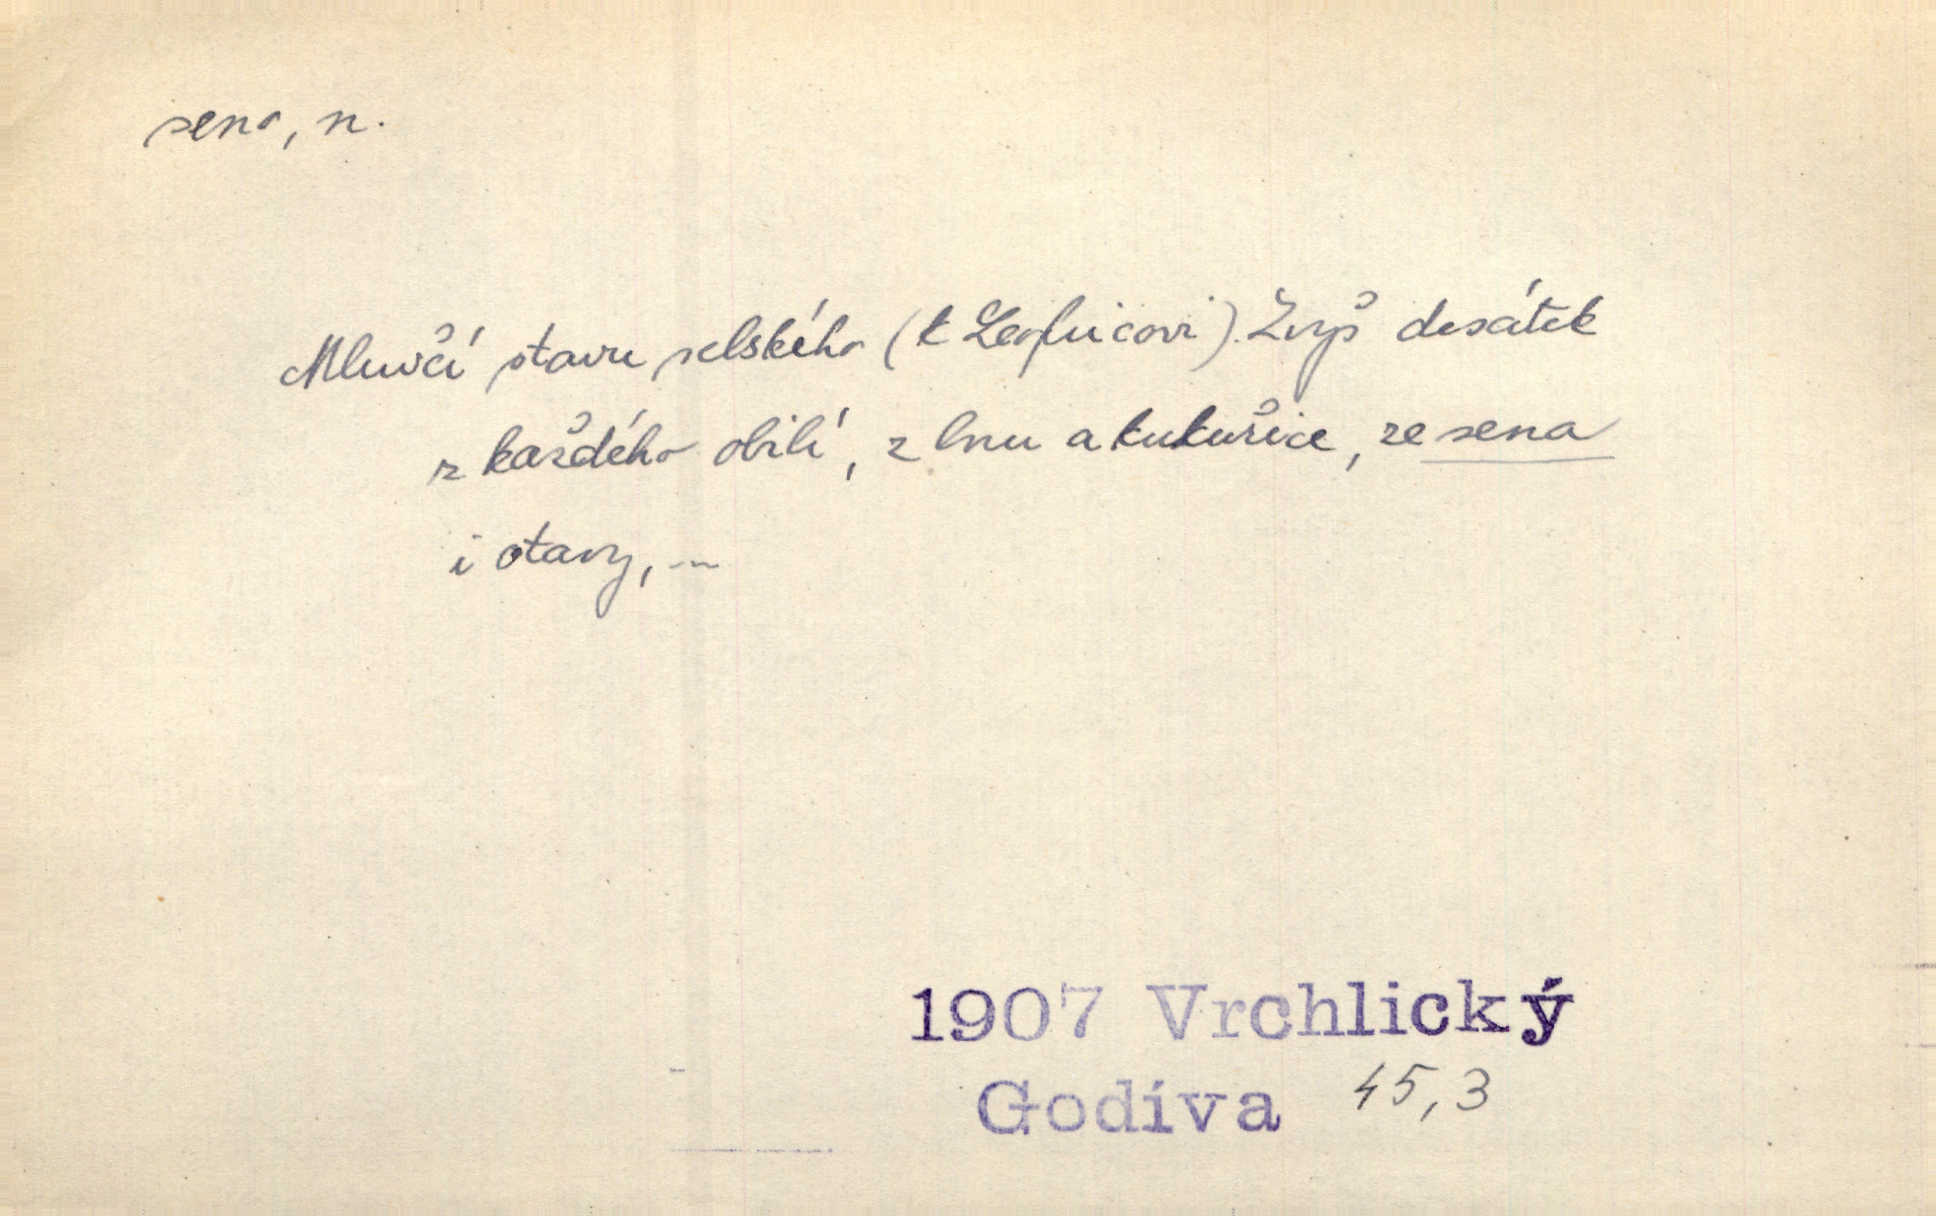 seno, n.
Mluvčí stavu selského (k Leofricovi). Zvyš desátek
z každého obilí, z lnu a kukuřice, ze sena
i otavy, ...
1907 Vrchlický
Godiva 45,3